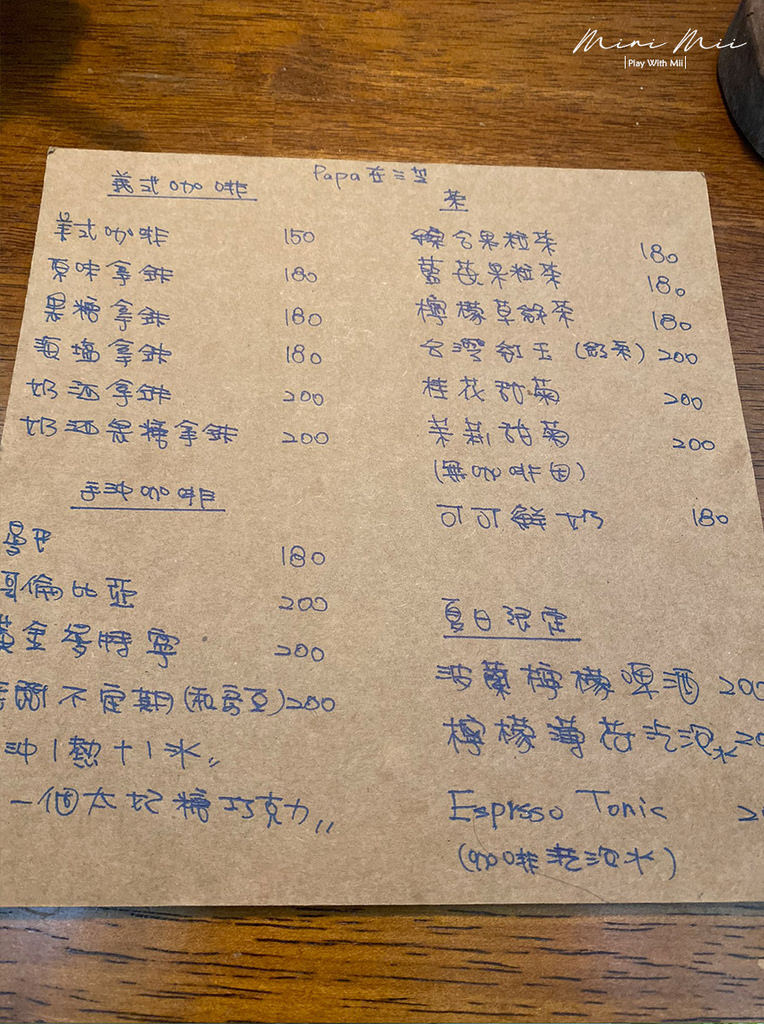 Mini Mii
|Play With Mii|
Papa在三芝
義式咖啡
美式咖啡 150
原味拿鉄 180
黑糖拿鉄 180
海塩拿鉄 180
奶酒拿鉄 200
奶酒黑糖拿鉄 200
手沖咖啡
曼巴 180
哥倫比亞 200
黃金曼特寧 200
不定期(私房豆)200
沖1熱+1冰〃
一個太妃糖巧克力〃
茶
綜合果粒茶 180
藍莓果粒茶 180
檸檬草綠茶 180
台灣紅玉 200
桂花甜菊 200
茉莉甜菊 200
(無咖啡因)
可可鮮奶 180
夏日限定
波蘭檸檬啤酒 200
檸檬薄荷汽泡水
Esprsso Tonic
(咖啡氣泡水)